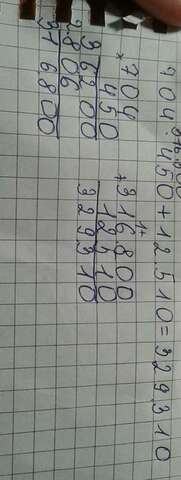 704 · 450 + 12.510 = 329.310
316.800
* 704
450
35200
2.806
316800
+ 316.800
12 510
329310